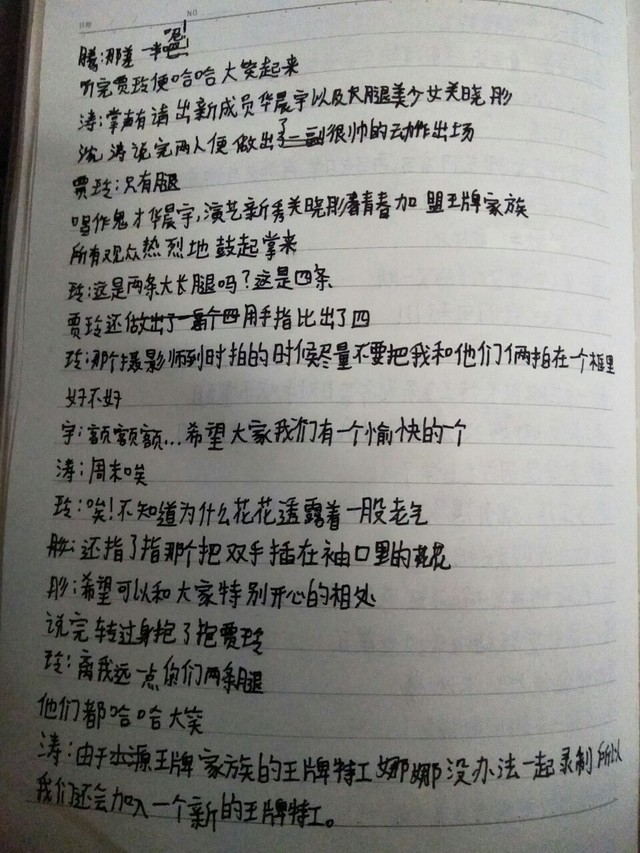 日期 NO
腾:那差一半吧 吧!
听完贾玲便哈哈大笑起来
涛:掌声有请出新成员华晨宇以及大腿美少女关晓彤
沈涛说完两人便做出了一副很帅的动作出场
贾玲:只有腿
唱作鬼才华晨宇,演艺新秀关晓彤青春加盟王牌家族
所有观众热烈地鼓起掌来
玲:这是两条大长腿吗?这是四条
贾玲还做出了一个四用手指比出了四
玲:那个摄影师到时拍的时候尽量不要把我和他们俩拍在一个框里
好不好
宇:额额额...希望大家我们有一个愉快的一个
涛:周末唉
玲:唉!不知道为什么花花透露着一股老气
还指了指那个把双手插在袖口里的花花
彤:希望可以和大家特别开心的相处
说完转过身抱了抱贾玲
玲:离我远一点你们两条腿
他们都哈哈大笑
涛:由于本源王牌家族的王牌特工娜娜没办法一起录制所以
我们还会加入一个新的王牌特工。